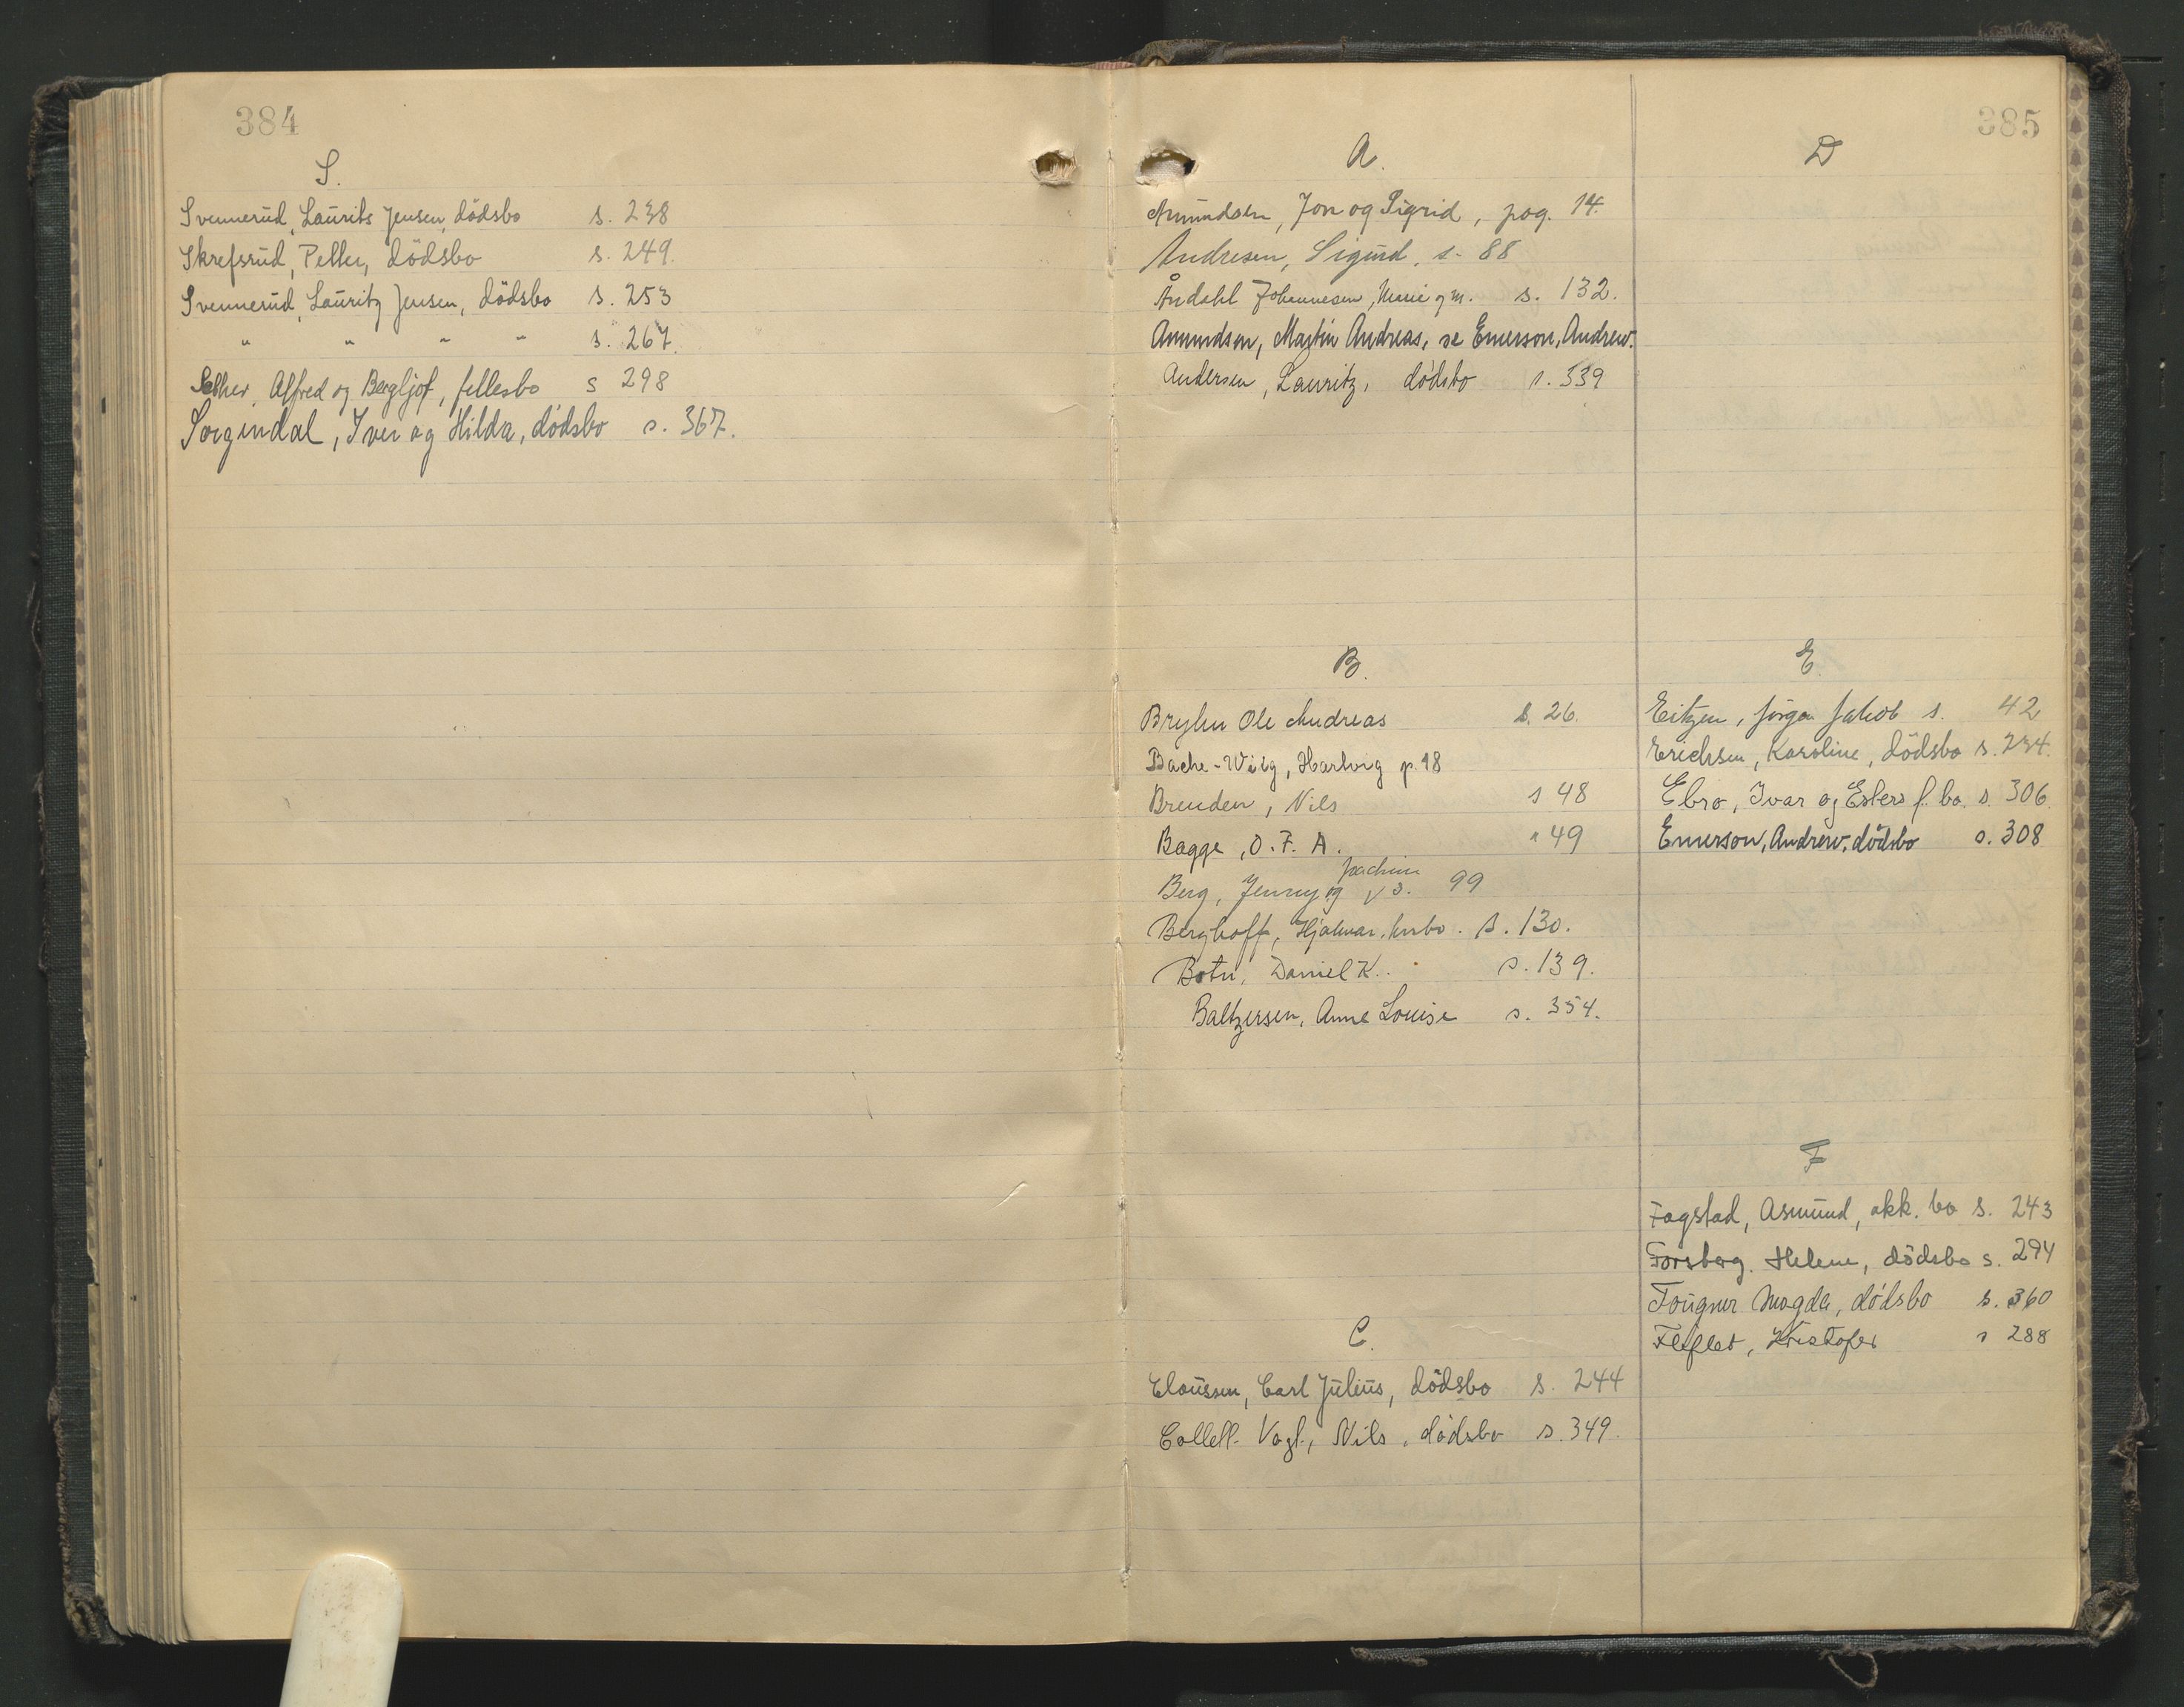 384
S.
Svennerud, Laurits Jensen, dödsbo s. 238
Skrefsrud, Petter, dödsbo s. 249.
Svennerud, Lauritz Jensen, dödsbo s. 253
" " " " s. 267.
Sether, Alfred og Bergljot, fellesbo s 298
Sorgendal, Iver og Hilda, dödsbo s. 367.
385
A.
Amundsen, Jon og Sigrid, pag. 14.
Andresen, Sigurd, s. 88
Åndahl Johannesen, s. 132.
Amundsen, Martin Andreas, se Emerson, Andrew.
Andersen, Lauritz, dödsbo s. 339
B.
Bryhn Ole Andreas s. 26.
Bache-Wiig, Hartvig p. 18
Brenden, Nils s 48
Bagge, O. F. A. " 49
Berg, Jenny og Joachim s. 99
Berghoff, Hjalmar, s. 130.
Botn, Daniel K. s. 139.
Baltzersen, Anne Louise s. 354.
C.
Claussen, Carl Julius, dödsbo s. 244
Collett-Vogt, Nils, dödsbo s. 349.
D
E
Eitzen, Jörgen Jakob s. 42
Erichsen, Karoline, dödsbo s. 234.
Ebro, Ivar og Esters f. bo. s. 306.
Emerson, Andrew, dödsbo s. 308
F
Fagstad, Asmund, akk. bo s. 243
Forsberg, Helene, dödsbo s. 294
Fougner Magda, dödsbo s. 360
Fleflet, Kristofer s 288